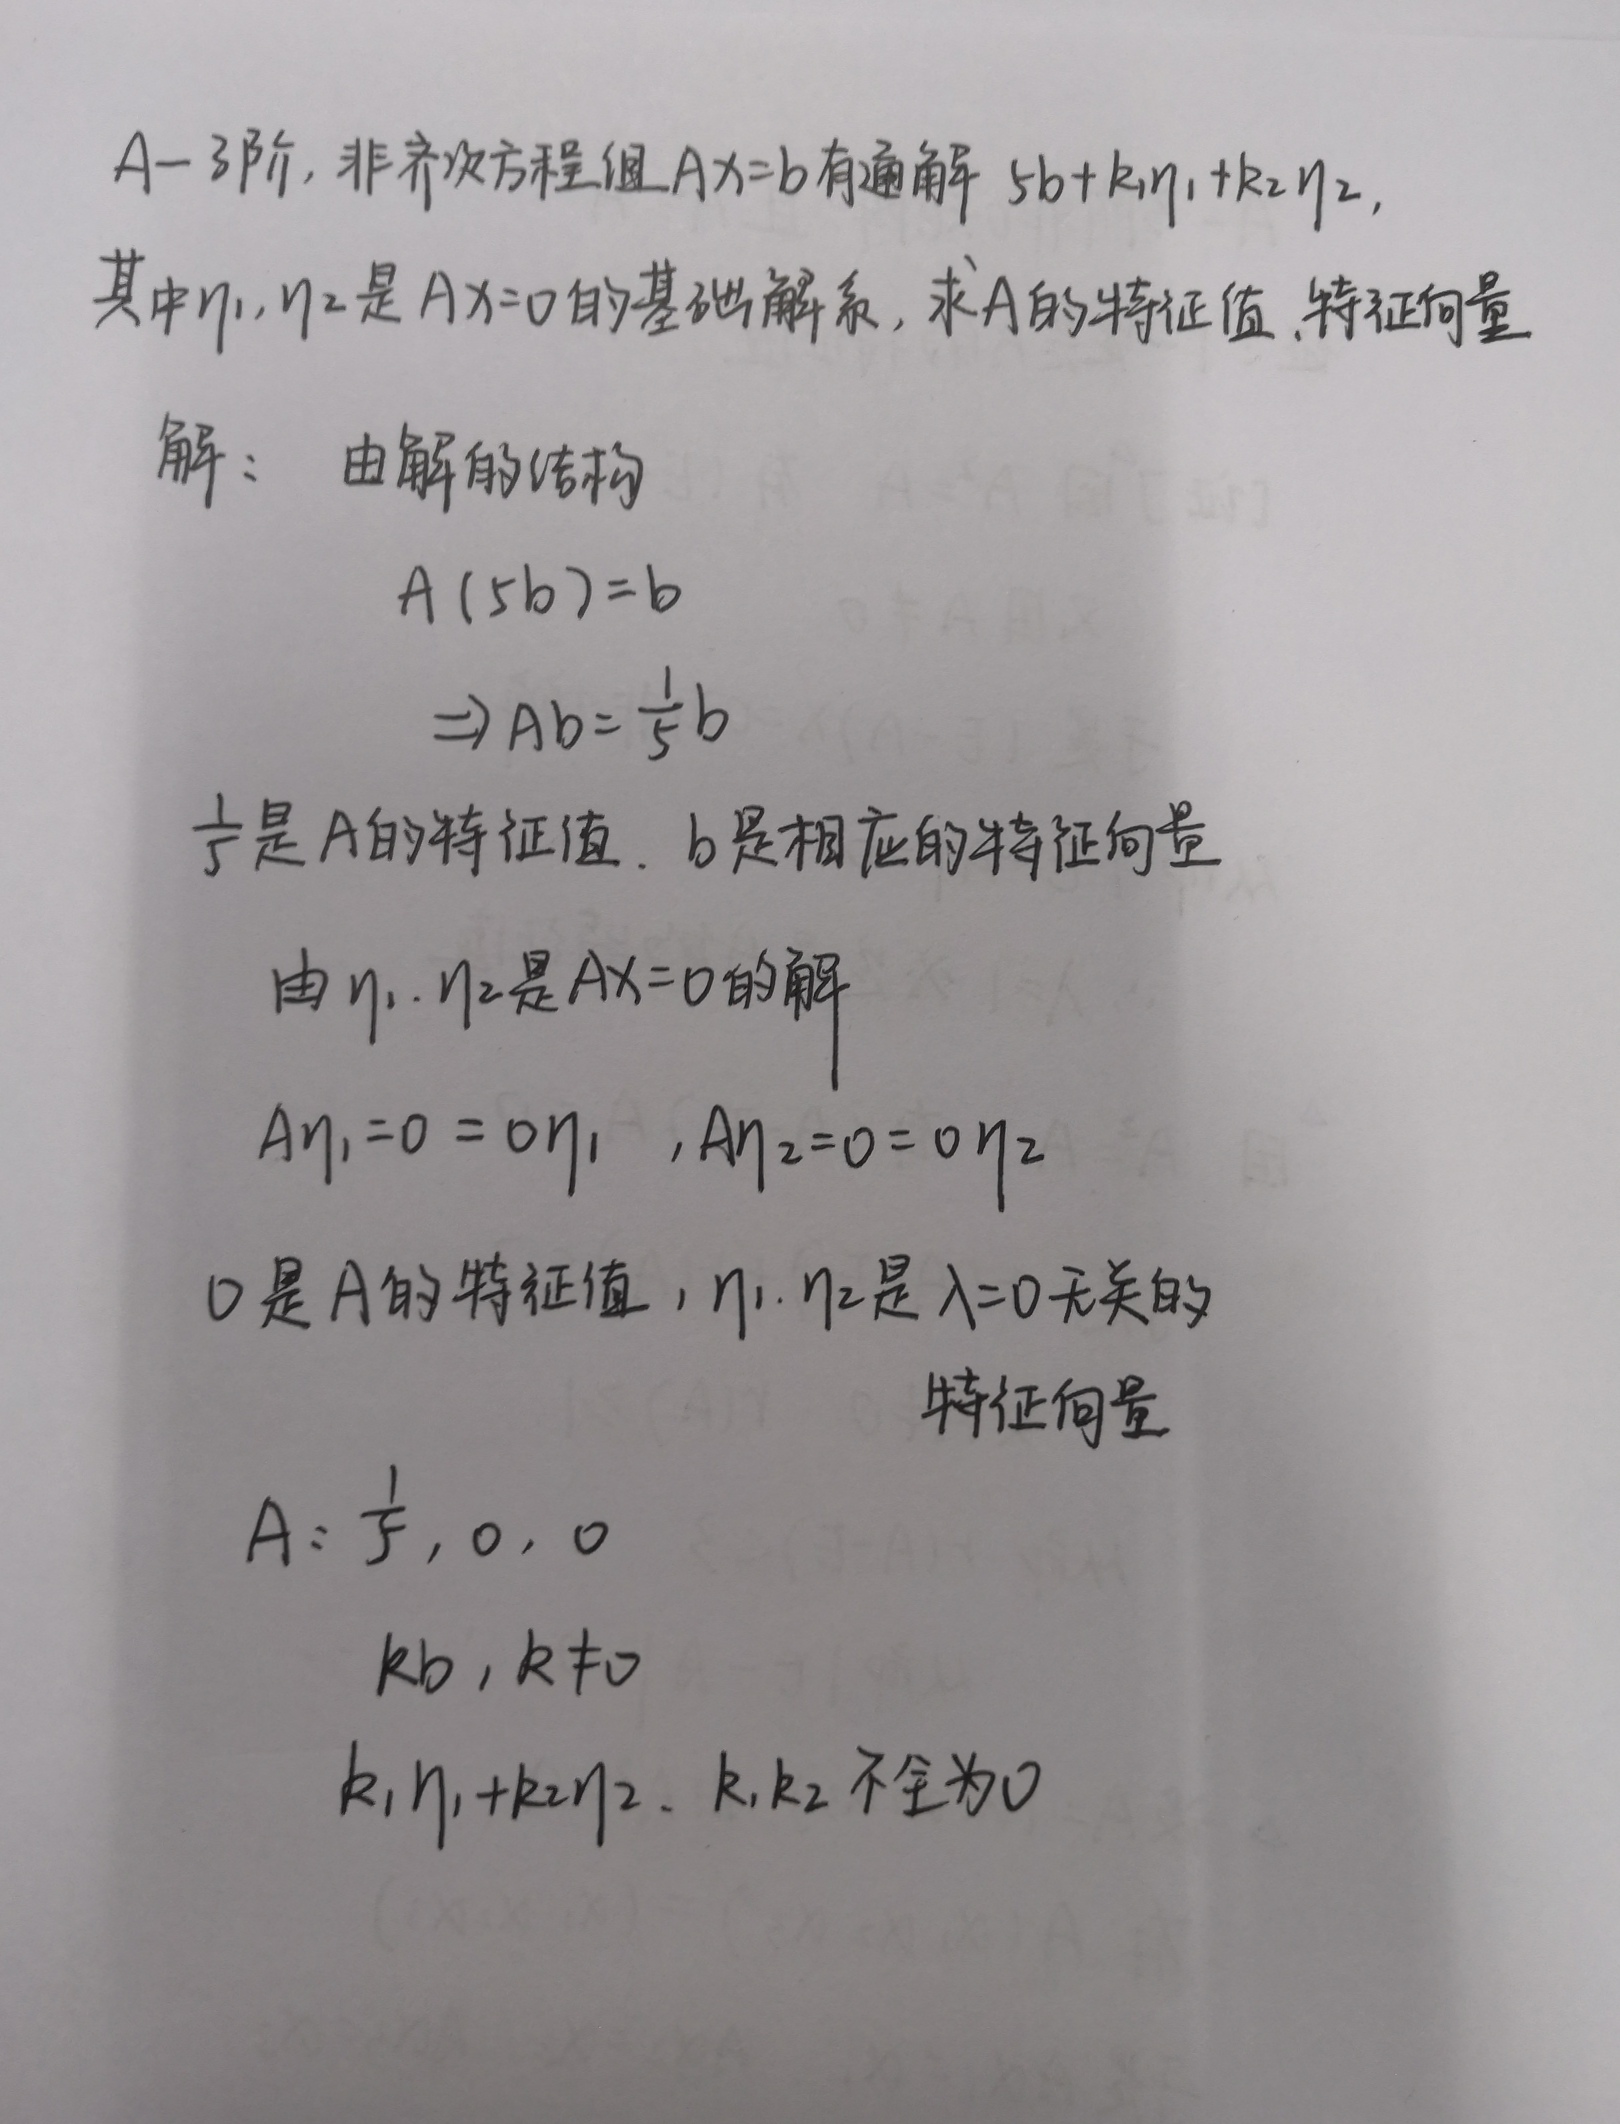 A-3阶，非齐次方程组Ax=b有通解 5b+k₁η₁+k₂η₂，
其中η₁，η₂是Ax=0的基础解系，求A的特征值、特征向量
解： 由解的结构
A(5b)=b
⇒Ab=1/5 b
1/5是A的特征值．b是相应的特征向量
由η₁．η₂是Ax=0的解
Aη₁=0=0η₁ ，Aη₂=0=0η₂
0是A的特征值，η₁．η₂是λ=0无关的
特征向量
A：1/5，0，0
kb，k≠0
k₁η₁+k₂η₂．k₁k₂不全为0